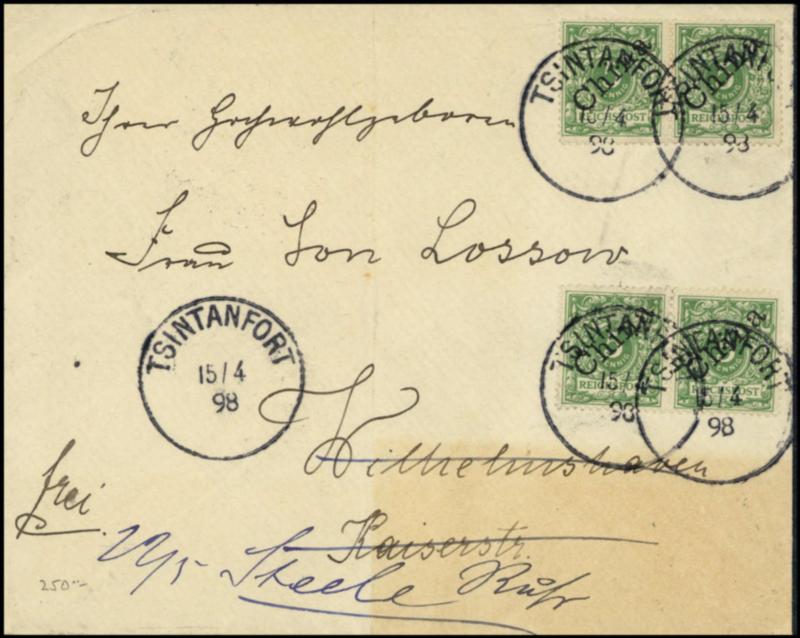 TSINTANFORT TSINTANFORT
China China
PFENNIG
REICHSPOST REICHSPOST
15/4 15/4
98 98
Ihrer Hochwohlgeboren
Frau von Lossow
TSINTANFORT
15/4
98
TSINTANFORT TSINTANFORT
China China
PFENNIG
REICHSPOST REICHSPOST
15/4 15/4
98 98
Wilhelmshaven
Kaiserstr.
frei.
22/5 Steele Ruhr
250.--